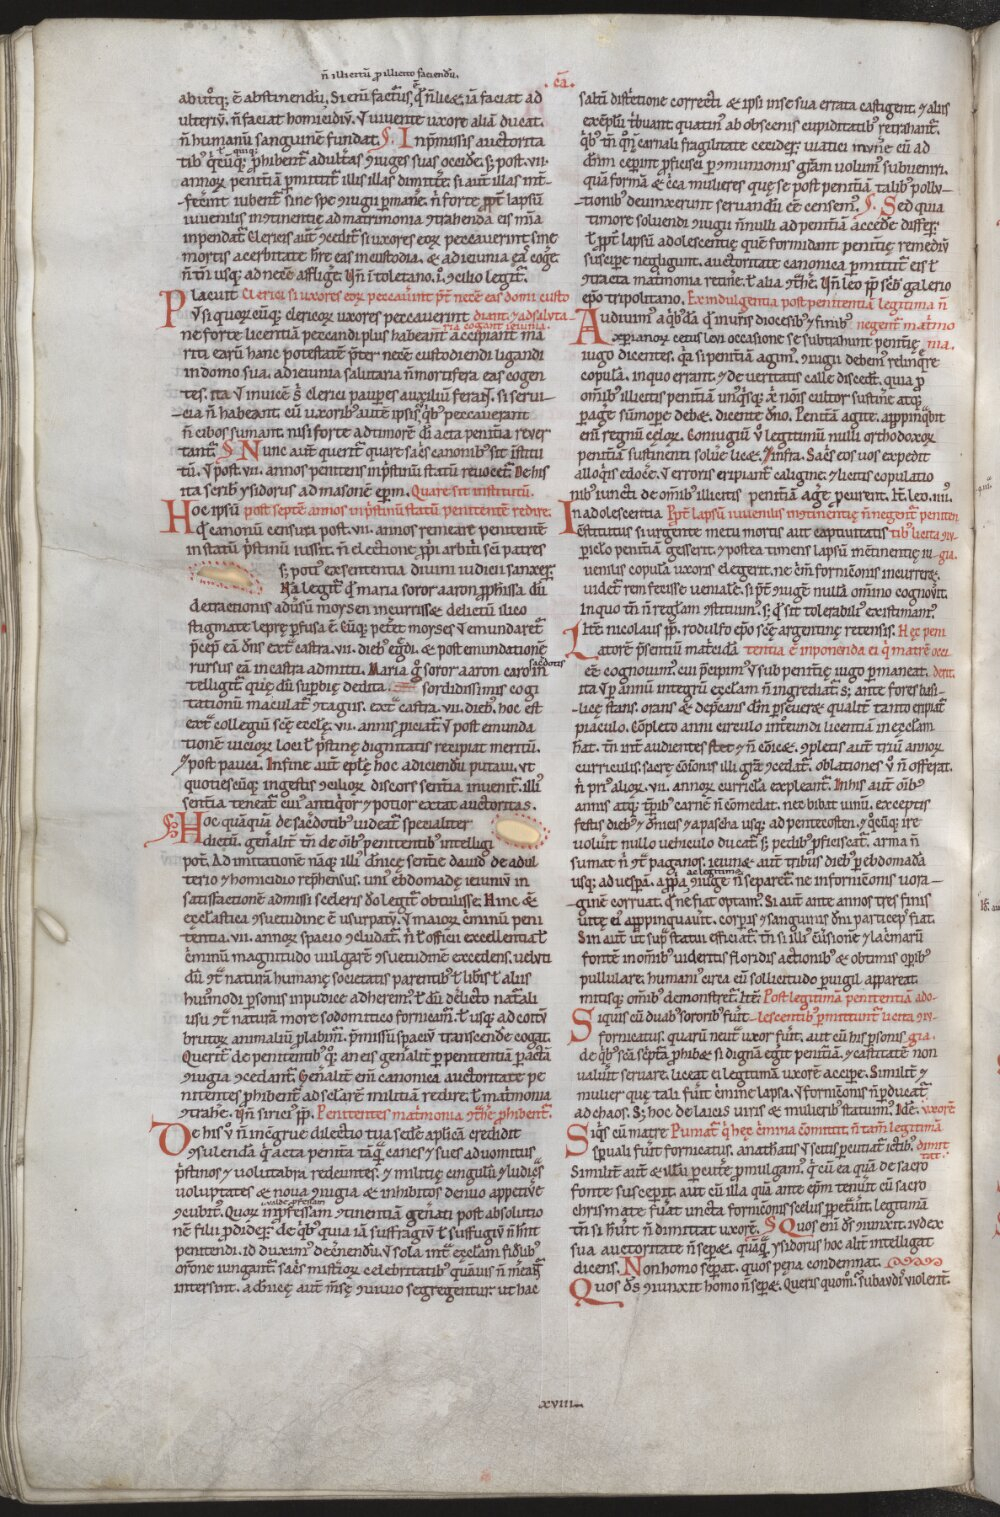 n̄ illicitū ꝓ illicito faciendū.
.cā.
ab utroq; ē abstinendū. Si enī facturus q̄ n̄ licet, iā faciat ad
ulteriū. n̄ faciat homicidiū. ut uiuente uxore aliā ducat.
n̄ humanū sanguinē fundat. In p̄missis auctorita
annoꝝ penitn̄iā ꝑmittit illis illas dimittere. si aut̄ illas
iuuenilis incontinentię ad matrimonia ꝯtrahenda eis
inpendat̄. Clericis aut̄ ꝯcedit̄ si uxores eoꝝ peccauerint sine
mortis acerbitate habere eas in custodia. & ad ieiunia
n̄ tn̄ usq; ad necē affligere. Vn̄ i toletano
Placuit Clerici si uxores eoꝝ peccauerint p̄ter necē eas domi custo
Vt si quorumcunq; clericoꝝ uxores peccauerint diant, & ad saluta
ria cogant ieiunia.
ne forte licentiā peccandi plus habeant accipiant ma
riti earū hanc potestatē p̄ter necē custodiendi ligandi
in domo sua. ad ieiunia salutaria n̄ mortifera eas cogen
tes. ita ut inuicē sibi clerici pauperes auxiliū ferant. si serui
cia n̄ habeant. cū uxoribus aute ipsis quibus peccauerant
n̄ cibos sumant. nisi forte ad timorē dī acta penitn̄ia reuer
tant̄. Nunc aut̄ querit̄ quare sacris canonibus sit institu
tū. ut post .vii. annos penitens in p̄stinū statū reuocet̄. De his
ita scribit ysidorus ad masonē ep̄m. Quare sit institutū.
Hoc ipsū post septē annos in p̄stinū statū penitentē redire.
Qd canonū censura post .vii. annos remeare penitentē
in statū p̄stinū iussit. n̄ electione ꝓprii arbitrii sc̄i patres
s; potius ex sententia diuini iudicii sanxerunt
Nā legit̄ qd maria soror aaron ꝓphetissa dū
detractionis aduersū moysen incurrisset delictū ilico
stigmate leprę ꝑfusa ē. Cūq; peteret moyses ut emundaret̄
p̄cepit eā dn̄s extra castra .vii. diebus egredi. & post emundationē
rursus eā in castra admitti. Maria ergo soror aaron caro in
sacerdotis
telligit̄ quę dū superbię dedita sordidissimis cogi
tationū maculat̄ ꝯtagiis. extra castra .vii. diebus. hoc est
extra collegiū sc̄ę eccl̄ę .vii. annis ꝓiciat̄ ut post emunda
tionē uicioꝝ loci ł p̄stinę dignitatis recipiat meritū.
& post pauca. In fine aut̄ epl̄ę hoc adiciendū putaui. ut
quotienscūq; in gestis ꝯcilioꝝ discors sententia inuenit̄. illius
sententia teneat̄ cuius antiquior & potior extat auctoritas.
Hoc quāquā de sacerdotibus uideat̄ specialiter
dictū. generalit̄ tn̄ de omnibus penitentibus intelligi
potest. Ad imitationē nāq; illius dn̄icę sententię dauid de adul
terio & homicidio rep̄hensus. unius ebdomadę ieiuniū in
satisfactionē admissi sceleris dō legit̄ obtulisse. Hinc &
eccl̄esiastica ꝯsuetudine ē usurpatū. ut maioꝝ criminū peni
tentia .vii. annoꝝ spacio ꝯcludat̄. n̄ ł officii excellentia ł
criminū magnitudo uulgarē ꝯsuetudinē excedens. uelut
dū ꝯtra naturā humanę societatis parentibus ł liberis ł aliis
huiusmodi ꝑsonis inpudice adheremus ł dū derelicto naturali
usu ꝯtra naturā more sodomitico fornicamur. ł usq; ad coitū
brutoꝝ animaliū ꝓlabimur. p̄missū spaciū transcendere cogat̄.
Querit̄ de penitentibus q; an eis generalit̄ ꝑ penitentiā ꝑactā
ꝯiugia ꝯcedant̄. Generalit̄ enī canonica auctoritate pe
nitentes ꝓhibent̄ ad sclarē militiā redire. ł matrimonia
ꝯtrahere. Vn̄ siricius pp. Penitentes matrimonia ꝯtrahere ꝓhibent̄.
De his ū n̄ incongrue dilectio tua sedē apl̄icā credidit
ꝯsulendā qui acta penitentia tāquā canes & sues ad uomitus
p̄stinos & uolutabra redeuntes. & militię cingulū & ludicras
uoluptates & noua ꝯiugia & inhibitos denuo appetiuere
ꝯcubitus. Quoꝝ in ꝓfessam ꝯtinentiā generati post absolutio
nē filii ꝓdiderunt. de quibus quia iā suffragiū ł suffugiū n̄ habent
penitendi. id duximus decernendū. ut sola intra eccl̄esiam fidelibus
or̄one iungant̄. sacris mistęrioꝝ celebritatibus quāuis n̄ mereant̄
intersint. a dn̄icę aut̄ mensę ꝯuiuio segregentur. ut hac
saltū districtione correcti & ipsi in se sua errata castigent. & aliis
exēplū tribuant quatinus ab obscenis cupiditatibus retrahant̄.
quibus tn̄ quoniam carnali fragilitate ceciderunt. uiatici munere cū ad
dn̄m ceperint ꝓficisci ꝑ ꝯmunionis grām uolumus subueniri.
quā formā & circa mulieres quę se post penitn̄iā talibus pollu
tionibus deuinxerunt seruandū esse censemus. Sed quia
timore soluendi ꝯiugii nonnulli ad penitn̄iā accedere differunt
ł ꝓpter lapsū adolescentię quē formidant penitentię remediū
suscipere negligunt. auctoritate canonica ꝑmittit̄ eis ł
ꝯtracta matrimonia retinere. ł alia ꝯtrahere. Vn̄ leo pp sc̄do galerio
ep̄o tripolitano. Ex indulgentia post penitentiā legitima n̄
Audiuimus a quibusdā qd in uris diocesibus & finibus negent̄ matrimo
xpianoꝝ cetus leui occasione se subtrahunt penitentię nia.
iugo dicentes. quia si penitentiā agimus. ꝯiugii debemus relinquere
copulā. in quo errant. & de ueritatis calle discedunt. quia pro
omnibus illicitis penitentiā unusquisq; xp̄i nois cultor sustinere atq;
peragere summopere debet. dicente dn̄o. Penitentiā agite. appropinquabit
enī regnū celoꝝ. Coniugiū ū legitimū nulli orthodoxoꝝ
penitn̄iā sustinenti soluere licet. & infra. Sacris eos uos expedit
alloquiis edocere. ut erroris eripiant̄ caligine. & licitis copulatio
nibus iuncti de omnibus illicitis penitn̄iā agere ꝓcurent. Itē leo .iiii.
In adolescentia Propter lapsū iuuenilis incontinentię n̄ negent̄ peniten
constitutus si urgente metu mortis aut captiuitatis tibus licita ꝯiu
periculo penitn̄iā gesserit. & postea timens lapsū incontinentię iu gia.
uenilis copulā uxoris elegerit. ne crimen fornicationis incurreret.
uidet̄ rem fecisse uenialē. si p̄ter ꝯiugē nullā omnino cognouit.
In quo tn̄ n̄ regulam ꝯstituimus. s; qd sit tolerabilius existimamus.
Itē. nicolaus pp. rodulfo ep̄o sc̄ę argentinę retensis. Hęc peni
Latorē p̄sentiū matricidā tentia ē inponenda ei qui matrē occi
cē cognouimus. cui p̄cipimus ut sub penitentię iugo ꝑmaneat. derit.
ita ut ꝑ annū integrū eccl̄esiam n̄ ingrediat̄. s; ante fores basi
licę stans. orans & deprecans dn̄m ꝑseueret qualiter a tanto eripiat̄
piaculo. Cōpleto anni circulo introeundi licentiam in eccl̄esiam
habeat. tn̄ inter audientes stet & n̄ cōicet. ꝯpletis aut̄ triū annoꝝ
curriculis. sacrę cōionis illi gratia ꝯcedat̄. oblationes ū n̄ offerat.
n̄ prius alioꝝ .vii. annoꝝ curricula expleant̄. In his aut̄ omnibus
annis atq; tꝑibus carnē n̄ comedat. nec bibat uinū. exceptis
festis diebus & dn̄icis & a pascha usq; ad pentecosten. & quocūq; ire
uoluerit nullo uehiculo ducat̄. s; pedibus ꝓficiscat̄. arma n̄
sumat nisi ꝯtra paganos. ieiunet aut̄ tribus diebus ꝑ ebdomadā
usq; ad uesperā. a ꝓpria ꝯiuge n̄ separet̄. ne in fornicationis uora
ac legitima
ginē corruat. qd ne fiat optamus. Si aut̄ ante annos tres finis
uitę ei appropinquauerit. corporis & sanguinis dn̄i particeps fiat.
Sin aut̄ ut supra statuimus efficiat̄. tn̄ si illius cōuersionē & lacrimarū
fonte in omnibus uideritis floridis actionibus & obtimis operibus
pullulare. humanius circa eum sollicitudo ꝑuigil appareat.
mitisq; omnibus demonstret̄. Itē. Post legitimā penitentiā ado
Si quis cū duabus sororibus fuerit lescentibus ꝑmittunt̄ licita ꝯiu
fornicatus. quarū neutra uxor fuerit. aut cū his ꝑsonis gia.
de quibus sc̄a scriptura ꝓhibet si dignā egerit penitn̄iā. & castitatē non
ualuerit seruare. liceat ei legitimā uxorē accipere. Similiter &
mulier quę tali fuerit crimine lapsa. ut fornicationis n̄ ꝑducat̄
ad chaos. S; hoc de laicis uiris & mulieribus statuimus. Idē. uxorē
Si quis cū matre Puniatur qui hęc crimina cōmittit. n̄ tamen legitimā
spirituali fuerit fornicatus. anathematis ut scitis percutiat̄ ictibus. dimit
tat.
Similiter aut̄ & illū percutere ꝓmulgamus. qui cū ea quā de sacro
fonte suscepit. aut cū illa quā ante ep̄m tenuit cū sacro
chrismate fuerat uncta fornicationis scelus perpetrauerit. legitimā
tn̄ si habuerit n̄ dimittat uxorē. Quos enī dn̄s ꝯiunxit. iudex
sua auctoritate n̄ separet. quāquā ysidorus hoc aliter intelligat
dicens. Non homo separat. quos pęna condemnat.
Quos dn̄s ꝯiunxit homo n̄ separet. Queris quomodo subaudiur uiolenter.
xviii